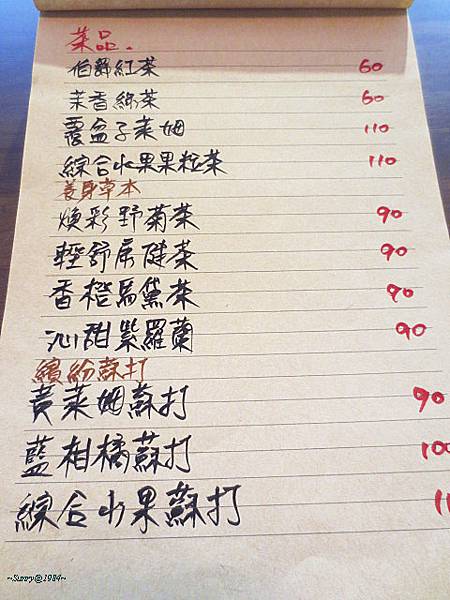 茶品.
伯爵紅茶 60
茉香綠茶 60
覆盆子萊姆 110
綜合水果果粒茶 110
養身草本
煥彩野菊茶 90
輕舒康健茶 90
香橙馬黛茶 90
沁甜紫羅蘭 90
繽紛蘇打
黃萊姆蘇打 90
藍柑橘蘇打 100
綜合水果蘇打
~Sunny@1984~